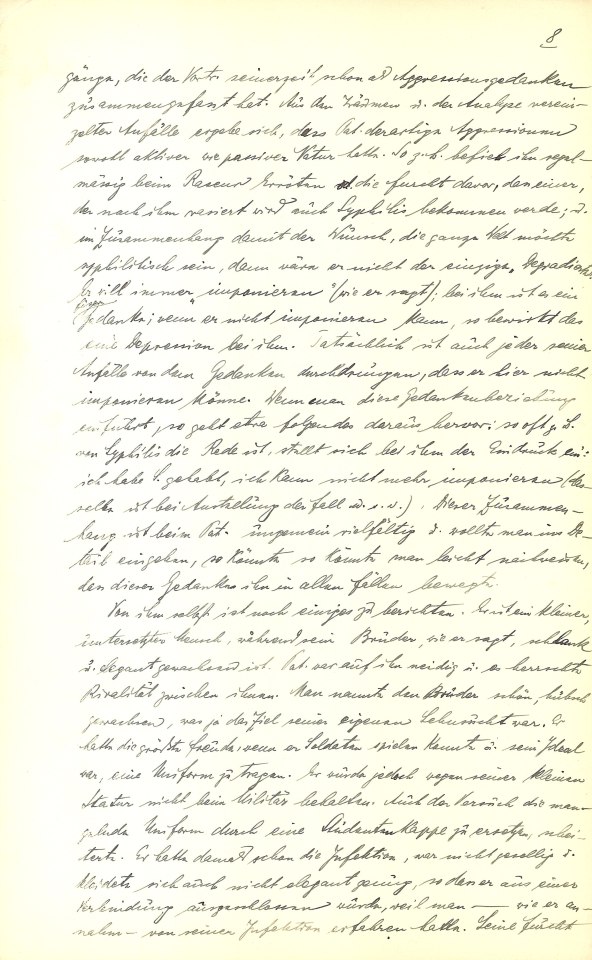 8
gänge, die der Vortr. seinerzeit schon als Aggressionsgedanken
zusammengefasst hat. Aus den Träumen u. der Analyse verein-
zelter Anfälle ergebe sich, dass Pat. derartige Aggressionen
sowohl aktiver wie passiver Natur hatte. So z.B. befiel ihn regel-
mässig beim Raseur Erröten u. die Furcht davor, dass einer,
der nach ihm rasiert wird auch Syphilis bekommen werde; u.
im Zusammenhang damit der Wunsch, die ganze Welt möchte
syphilitisch sein, dann wäre er nicht der einzige
Er will immer "imponieren" (wie er sagt); bei ihm ist es ein
Gedanke; wenn er nicht imponieren kann, so bewirkt das
eine Depression bei ihm. Tatsächlich ist auch jeder seiner
Anfälle von dem Gedanken durchdrungen, dass er hier nicht
imponieren könne. Wenn man diese Gedankenbeziehung
einführt, so geht etwa folgendes daraus hervor: so oft z.B.
von Syphilis die Rede ist, stellt sich bei ihm der Eindruck ein:
ich habe S. gehabt, ich kann nicht mehr imponieren (das-
selbe ist bei Anstellung der Fall u. s. w.). Dieser Zusammen-
hang ist beim Pat. ungemein vielfältig u. wollte man ins De-
tail eingehen, so könnte so könnte man leicht nachweisen,
dass dieser Gedanke ihn in allen Fällen bewegt.
Von ihm selbst ist noch einiges zu berichten. Er ist ein kleiner,
untersetzter Mensch, während sein Bruder, wie er sagt, schlank
u. elegant gewachsen ist. Pat. war auf ihn neidig u. es herrschte
Rivalität zwischen ihnen. Man nannte den Bruder schön, hübsch
gewachsen, was ja das Ziel seiner eigenen Sehnsucht war. Er
hatte die grösste Freude, wenn er Soldaten spielen konnte u. sein Ideal
war, eine Uniform zu tragen. Er wurde jedoch wegen seiner kleinen
Statur nicht beim Militär behalten. Auch der Versuch die man-
gelnde Uniform durch eine Studentenkappe zu ersetzen, schei-
terte. Er hatte damals schon die Infektion, war nicht gesellig u.
kleidete sich auch nicht elegant genug, so dass er aus einer
Verbindung ausgeschlossen wurde, weil man — wie er an-
nahm — von seiner Infektion erfahren hatte. Seine Furcht